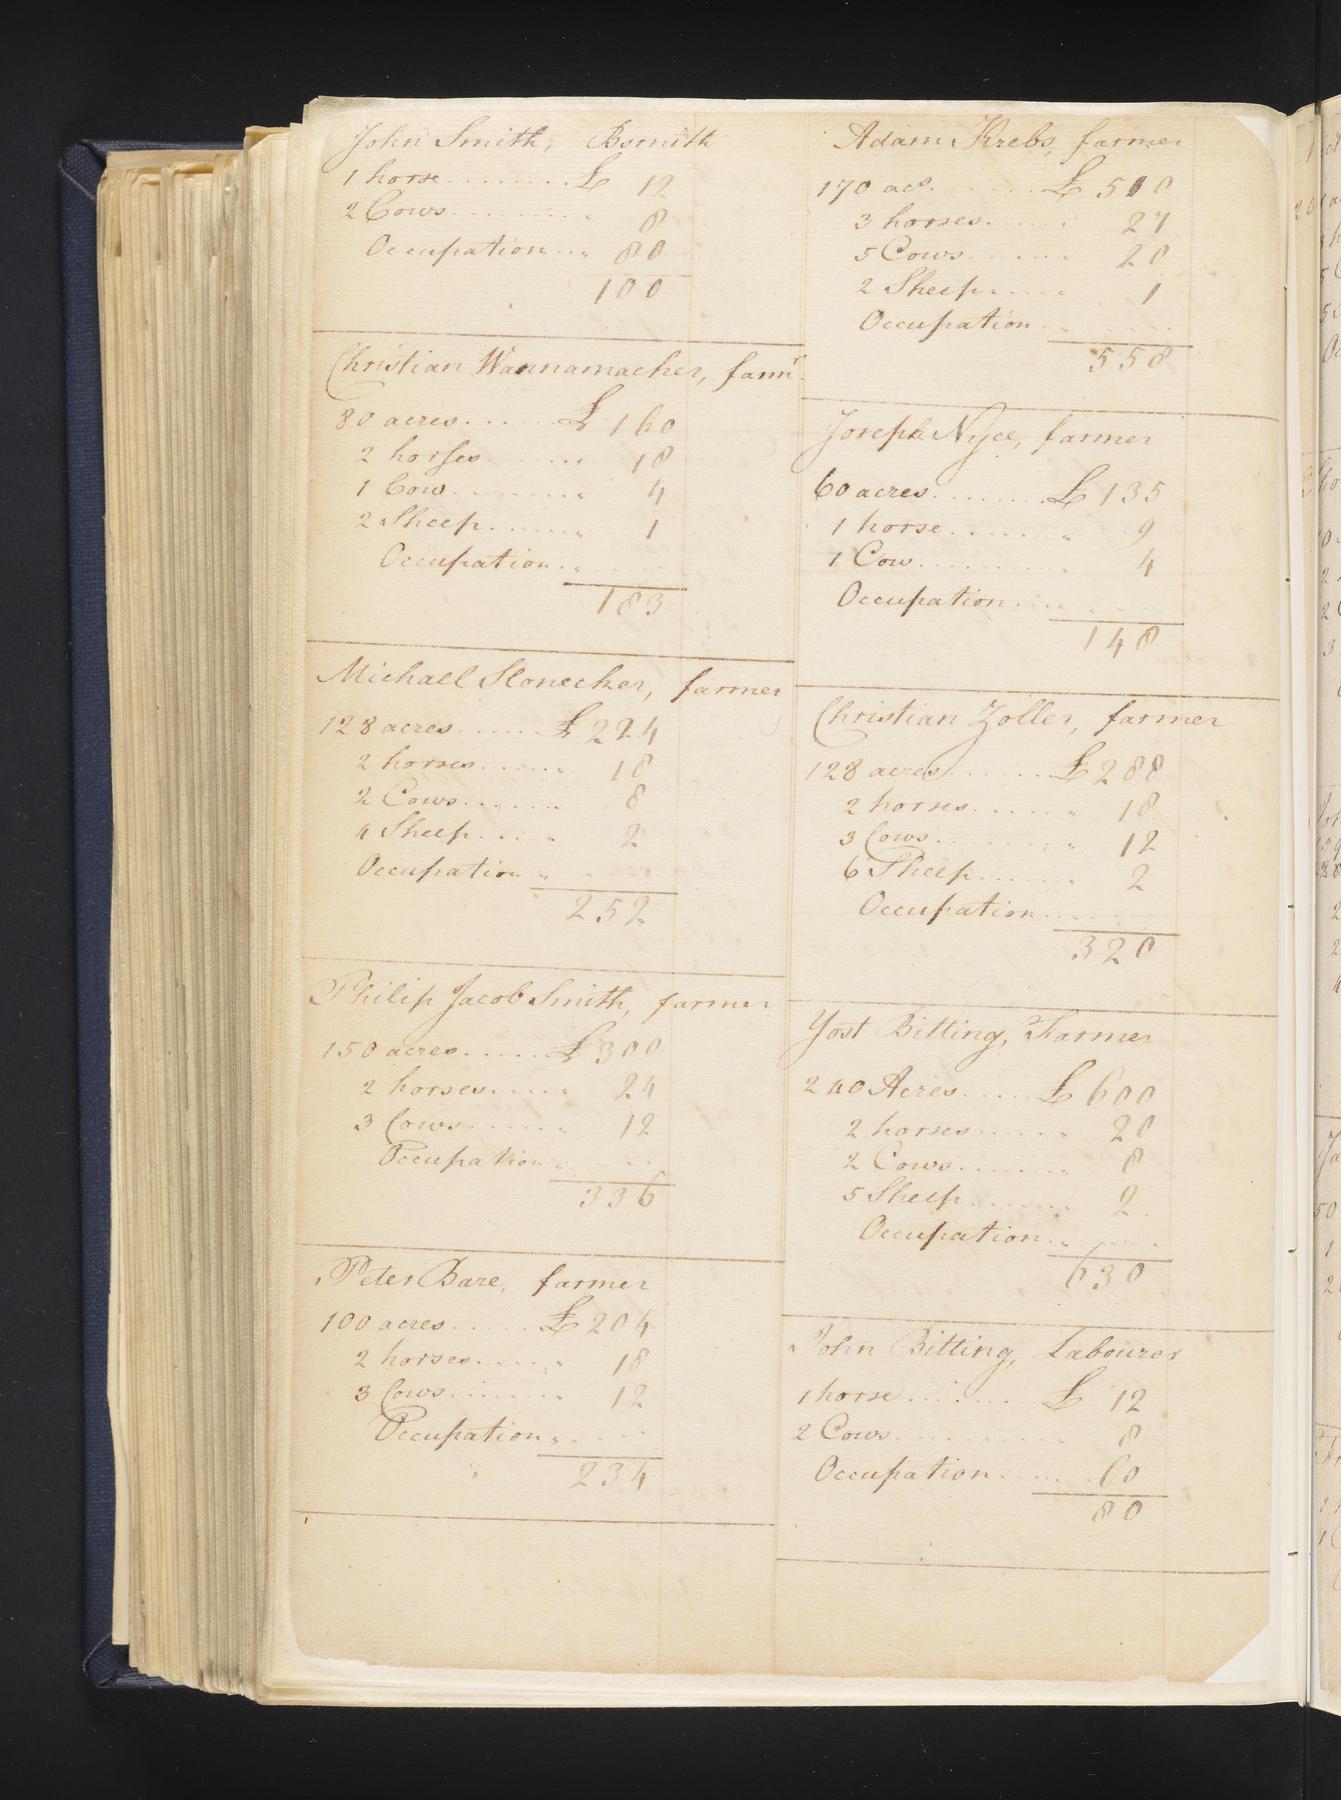 John Smith, Bsmith
1 horse ......... £ 12
2 Cows ......... " 8
Occupation ... " 80
100
Christian Wannamacher, farmr
80 acres ...... £ 160
2 horses ....... " 18
1 Cow ......... " 4
2 Sheep ....... " 1
Occupation . " ....
183
Michael Slonecker, farmer
128 acres ...... £ 224
2 horses ...... " 18
2 Cows ....... " 8
4 Sheep ..... " 2
Occupation " ....
252
Philip Jacob Smith, farmer
150 acres ..... £ 300
2 horses ..... " 24
3 Cows ...... " 12
Occupation " ...
336
Peter Bare, farmer
100 acres ..... £ 204
2 horses ..... " 18
3 Cows ....... " 12
Occupation " ....
234
Adam Krebs, farmer
170 acs. ...... £ 510
3 horses ...... " 27
5 Cows ....... " 20
2 Sheep ..... " 1
Occupation . " ....
558
Joseph Nyce, farmer
60 acres ........ £ 135
1 horse ......... " 9
1 Cow .......... " 4
Occupation .... " ....
148
Christian Zoller, farmer
128 acres ...... £ 288
2 horses ...... " 18
3 Cows ........ " 12
6 Sheep ...... " 2
Occupation .......
320
Yost Bitting, Farmer
240 Acres ..... £ 600
2 horses ..... " 20
2 Cows ....... " 8
5 Sheep ...... " 2
Occupation . " ....
630
John Bitting, Labourer
1 horse ........ £ 12
2 Cows .......... " 8
Occupation ..... 60
80